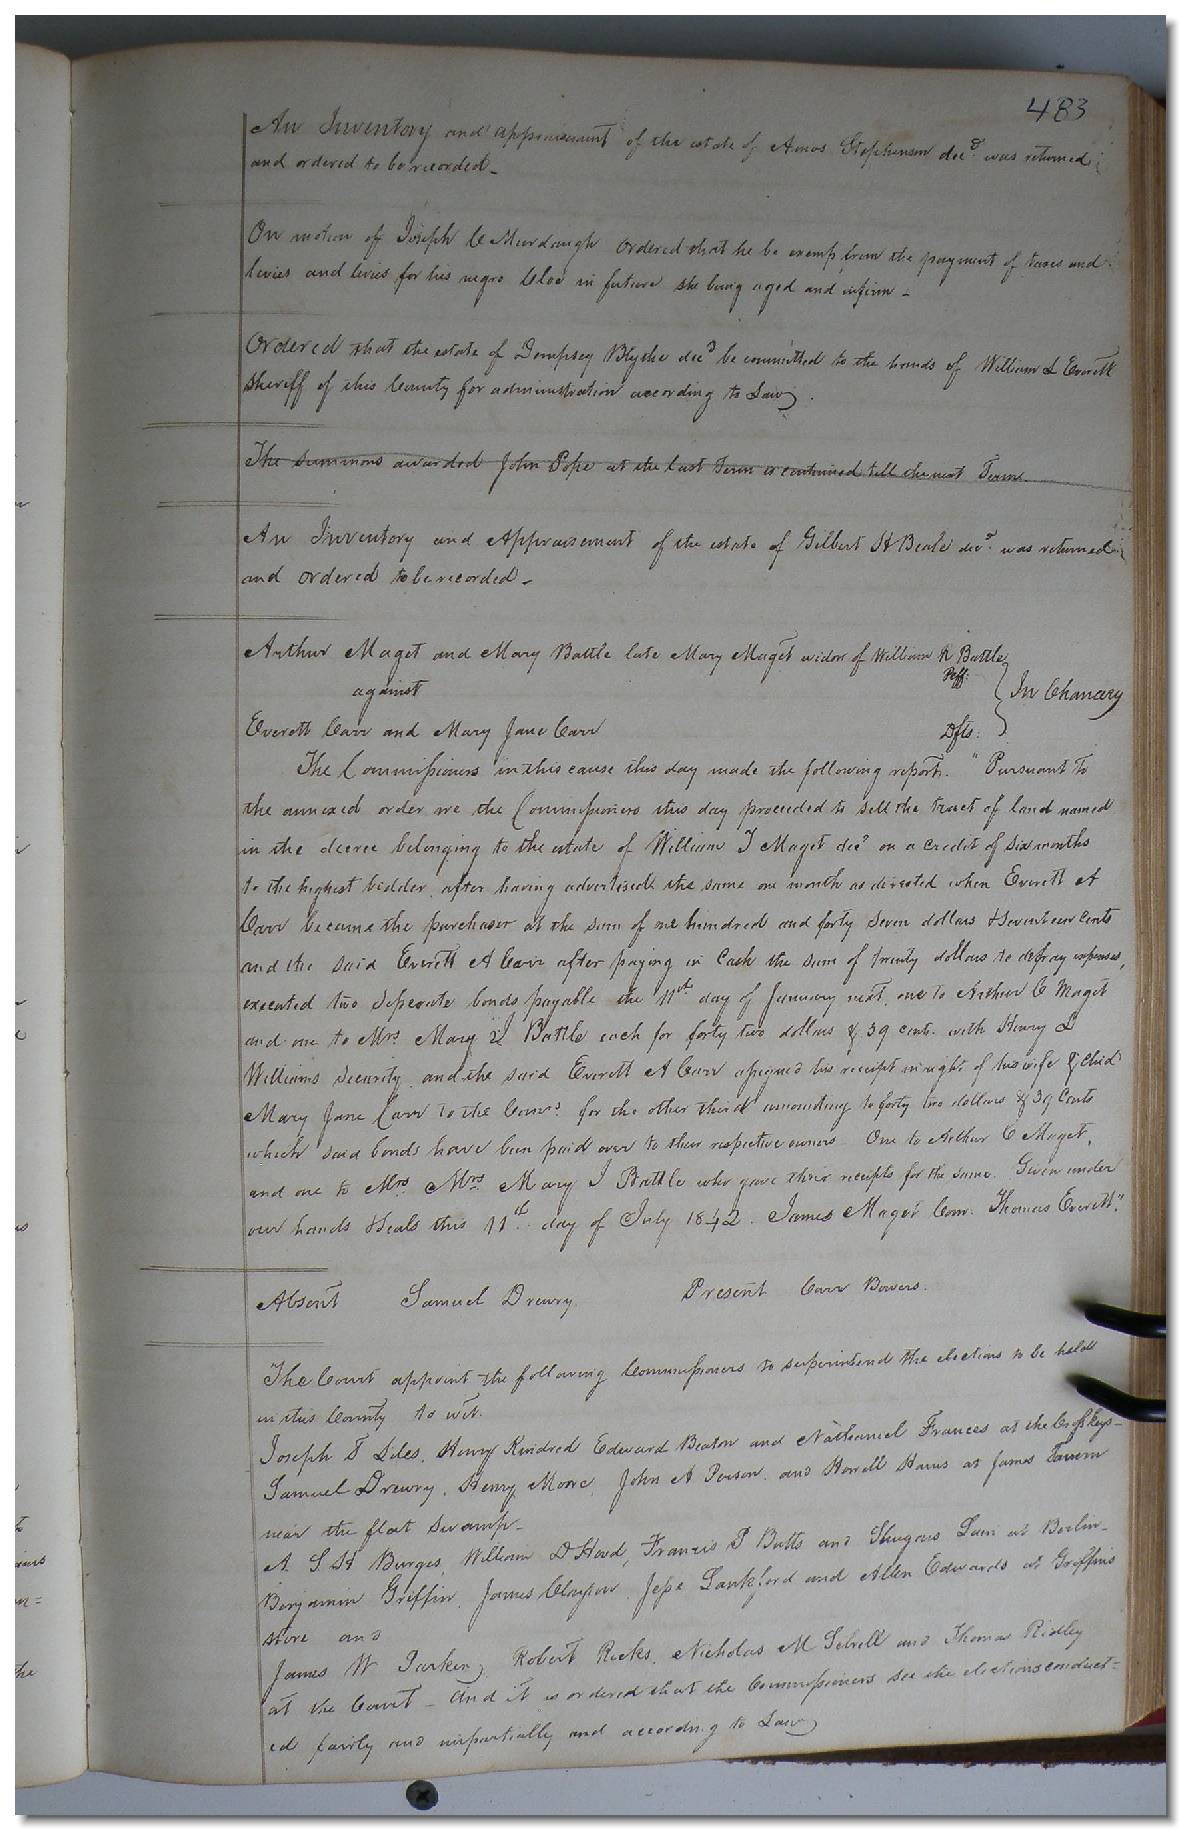 483
An Inventory and appraisement of the estate of Amos Stephenson decd. was returned
and ordered to be recorded_
On motion of Joseph C Murdaugh ordered that he be exemp from the payment of taxes and
levies and levies for his negro Cloe in future she being aged and infirm _
Ordered that the estate of Dempsey Blythe decd be committed to the hands of William L Everett
Sheriff of this County for administration according to Law.
The summons awarded John Pope at the last Term is continued till the next Term
An Inventory and Appraisement of the estate of Gilbert H Beale decd. was returned
and ordered to be recorded_
Arthur Maget and Mary Battle late Mary Maget widow of William R Battle
Plff.
against
In Chancery
Everett Carr and Mary Jane Carr Dfts.
The Commissioners in this cause this day made the following report. "Pursuant to
the annexed order we the Commissioners this day proceeded to sell the tract of land named
in the decree belonging to the estate of William J Maget decd on a credit of six months
to the highest bidder after having advertised the same one month as directed when Everett A
Carr became the purchaser at the sum of one hundred and forty Seven dollars & Seventeen Cents
and the said Everett A Carr after paying in Cash the sum of twenty dollars to defray expenses,
executed two Seperate bonds payable the 11th day of January next, one to Arthur C Maget
and one to Mrs Mary J Battle each for forty two dollars & 39 cents. with Henry L
Williams Security and the said Everett A Carr assigned his receipt in right of his wife & child
Mary Jane Carr to the Comrs. for the other third amounting to forty two dollars & 39 Cents
which said bonds have been paid over to their respective owners One to Arthur C Maget,
and one to Mrs. Mrs. Mary J Battle who gave their receipts for the same. Given under
our hands & Seals this 11th day of July 1842. James Maget Comr. Thomas Everett"
Absent Samuel Drewry Present Carr Bowers.
The Court appoint the following Commissioners to superintend the elections to be held
in this County to wit.
Joseph T Liles, Henry Kindred Edward Beaton and Nathaniel Frances at the Crosskeys_
Samuel Drewry, Henry Moore, John A Person and Howell Harris at James Tavern
near the flat swamp_
A. S. H Burges, William D Hood, Francis P Butts and Shugars Lain at Berlin_
Benjamin Griffin, James Clayton, Jesse Lankford and Allen Edwards at Griffins
store and
James W Parker, Robert Ricks, Nicholas M Sebrell and Thomas Ridley
at the Court _ And it is ordered that the Commissioners see the elections conduct=
ed fairly and impartially and according to Law